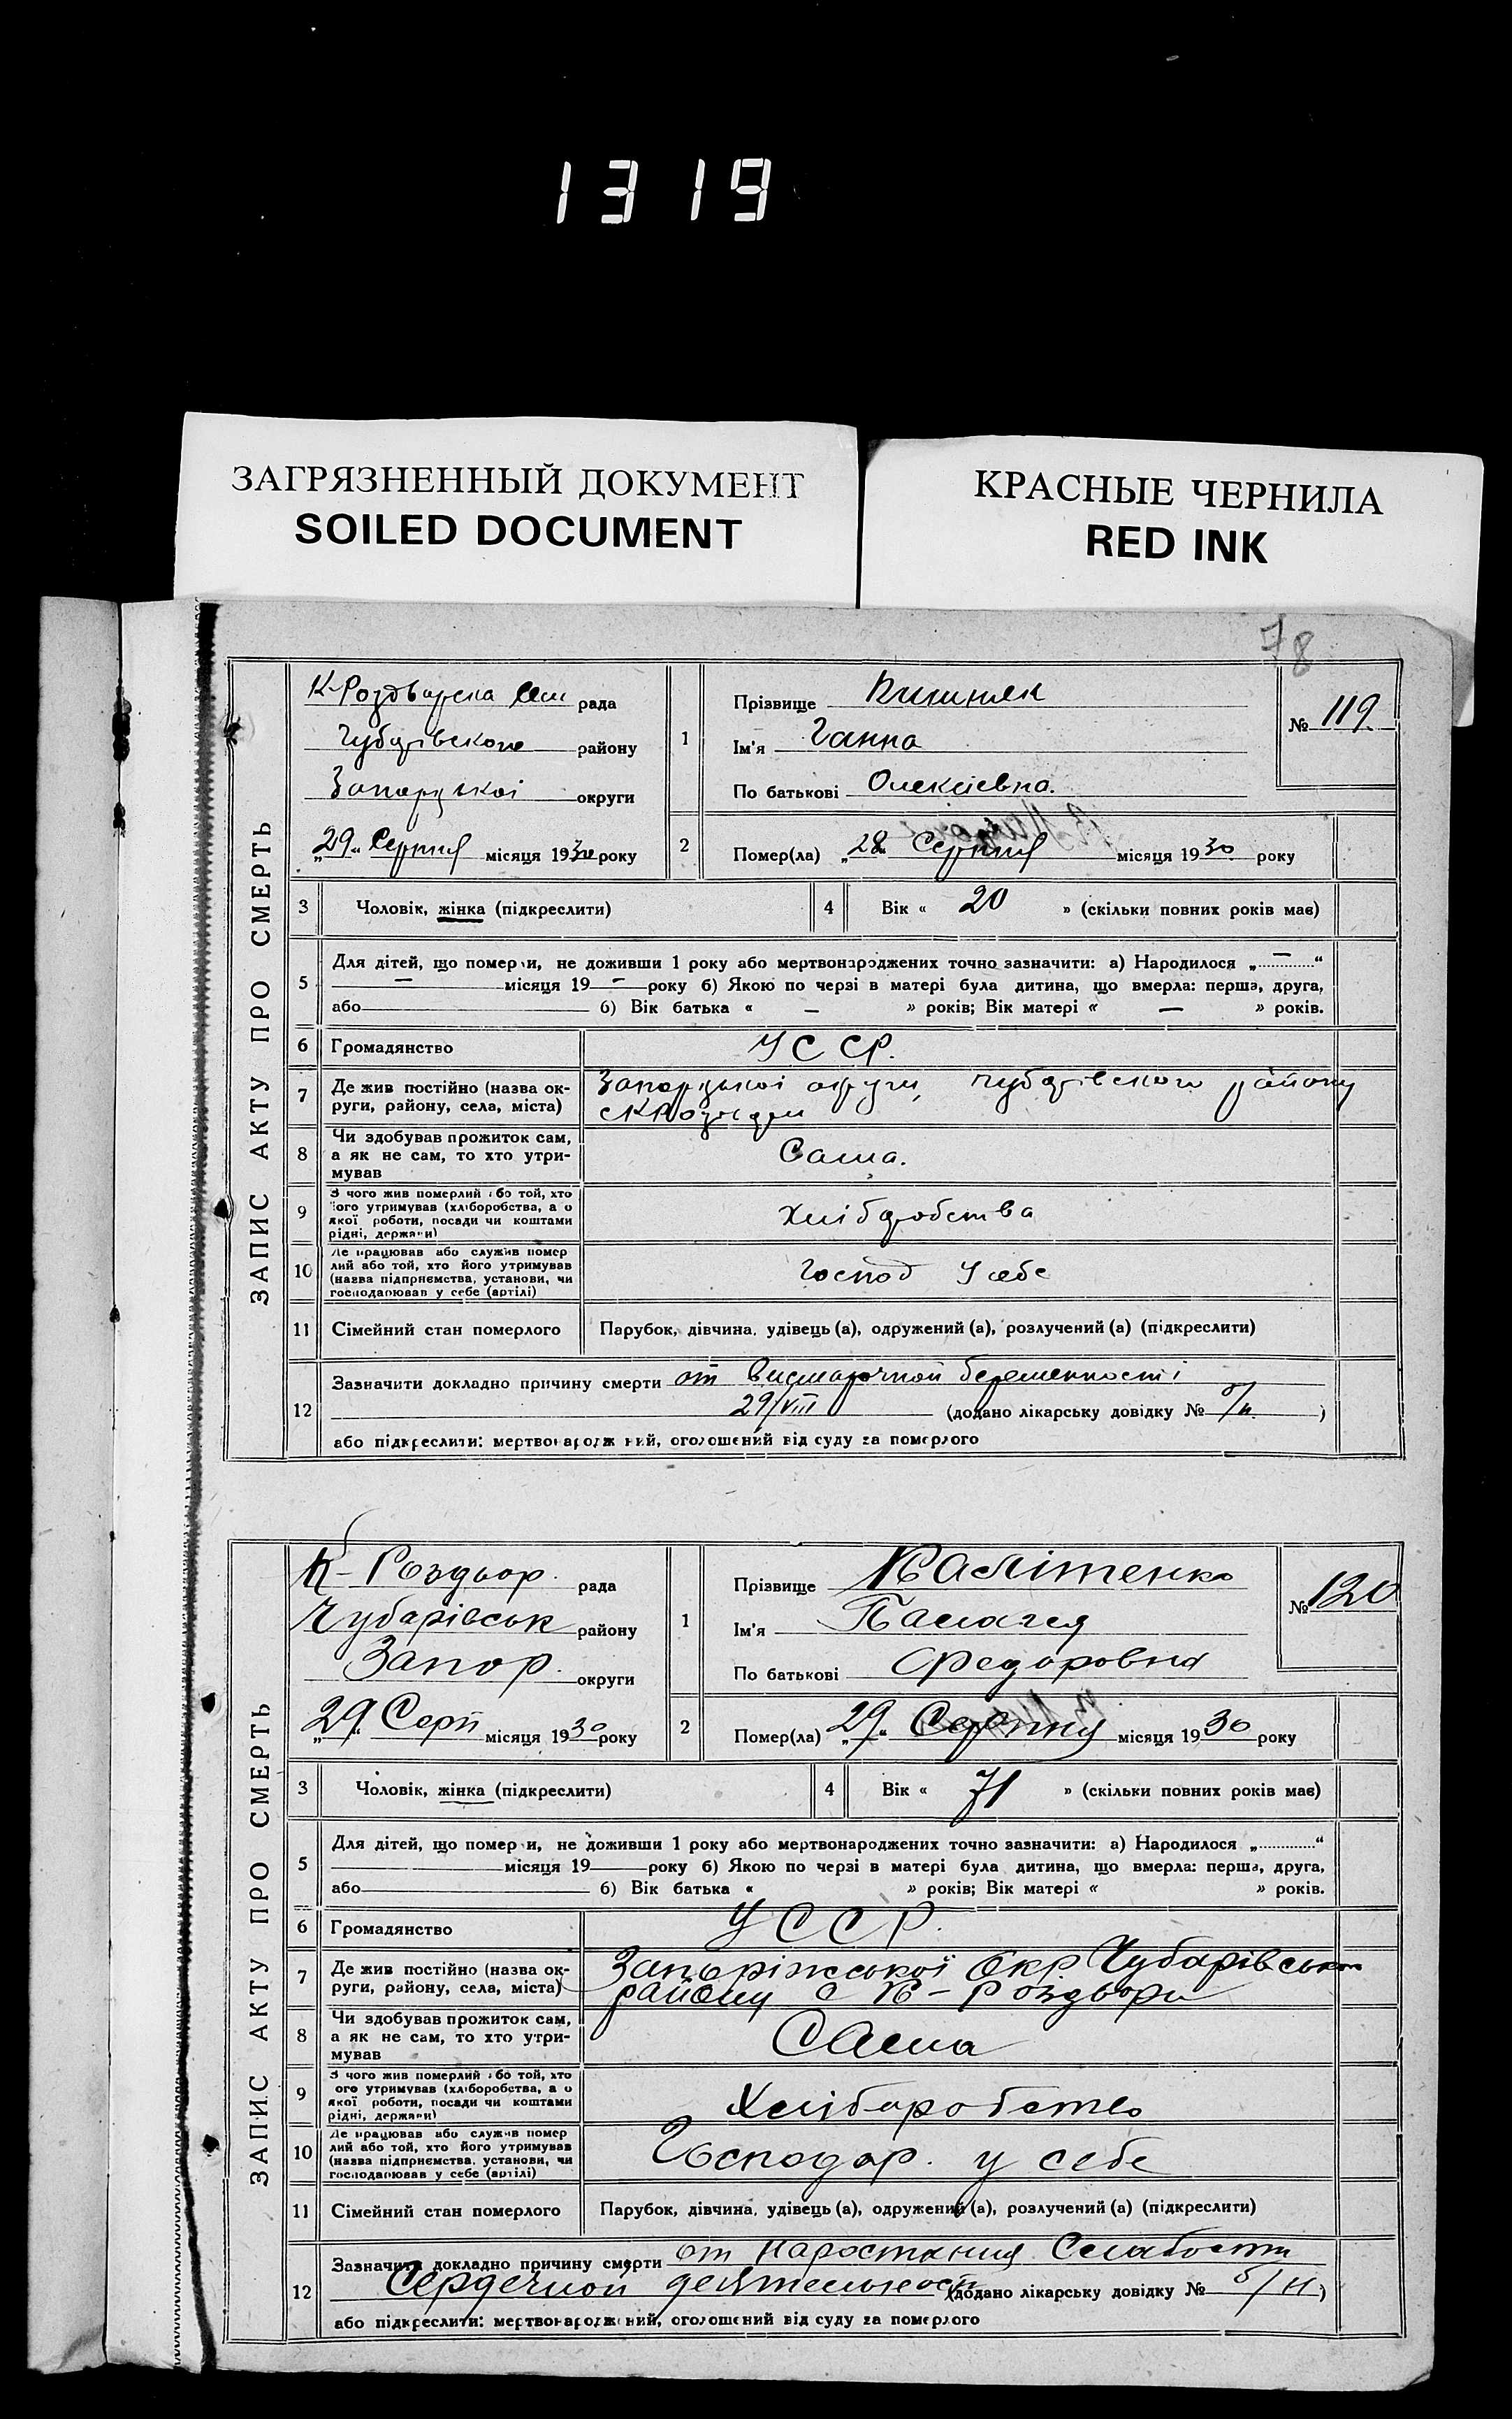 1319
ЗАГРЯЗНЕННЫЙ ДОКУМЕНТ
SOILED DOCUMENT
КРАСНЫЕ ЧЕРНИЛА
RED INK
78
ЗАПИС АКТУ ПРО СМЕРТЬ
рада
Чубарівського району
округи
„29“ Серпня місяця 1930 року
1
Прізвище
Ім'я Ганна
По батькові Олексіевна.
№ 119.
2
Помер(ла) „28“ Серпня місяця 1930 року
3 Чоловік, жінка (підкреслити)
4 Вік « 20 » (скільки повних років має)
5
Для дітей, що померли, не доживши 1 року або мертвонароджених точно зазначити: а) Народилося „ — “
— місяця 19 — року б) Якою по черзі в матері була дитина, що вмерла: перша, друга,
або б) Вік батька « — » років; Вік матері « — » років.
6 Громадянство УССР.
7
Де жив постійно (назва ок-
руги, району, села, міста)
округи, Чубарівського району
8
Чи здобував прожиток сам,
а як не сам, то хто утри-
мував
Сама.
9
З чого жив померлий або той, хто
його утримував (хліборобства, а о
якої роботи, посади чи коштами
рідні, держави)
Хліборобства
10
Де працював або служив помер
лий або той, хто його утримував
(назва підприємства, установи, чи
господарював у себе (артілі)
Господ У себе
11 Сімейний стан померлого Парубок, дівчина, удівець (а), одружений (а), розлучений (а) (підкреслити)
12
Зазначити докладно причину смерти от беременності
29/VIII (додано лікарську довідку № б/н. )
або підкреслити: мертвонароджений, оголошений від суду за померлого
ЗАПИС АКТУ ПРО СМЕРТЬ
К-Роздьор. рада
Чубарівськ району
Запор. округи
„29“ Серп місяця 1930 року
1
Прізвище Калітенко
Ім'я Палагея
По батькові Федоровна
№ 120
2
Помер(ла) „29“ Серпня місяця 1930 року
3 Чоловік, жінка (підкреслити)
4 Вік « 71 » (скільки повних років має)
5
Для дітей, що померли, не доживши 1 року або мертвонароджених точно зазначити: а) Народилося „ “
місяця 19 року б) Якою по черзі в матері була дитина, що вмерла: перша, друга,
або б) Вік батька « » років; Вік матері « » років.
6 Громадянство УССР.
7
Де жив постійно (назва ок-
руги, району, села, міста)
Запоріжської Окр Чубарівського
району с К-Роздори
8
Чи здобував прожиток сам,
а як не сам, то хто утри-
мував
Сама
9
З чого жив померлий або той, хто
ого утримував (хліборобства, а о
якої роботи, посади чи коштами
рідні, держави)
Хліборобство
10
Де працював або служив помер
лий або той, хто його утримував
(назва підприємства, установи, чи
господарював у себе (артілі)
Господар. у себе
11 Сімейний стан померлого Парубок, дівчина, удівець (а), одружений (а), розлучений (а) (підкреслити)
12
Зазначити докладно причину смерти от наростания Слабости
Сердечной деятельности (додано лікарську довідку № б/н )
або підкреслити: мертвонароджений, оголошений від суду за померлого